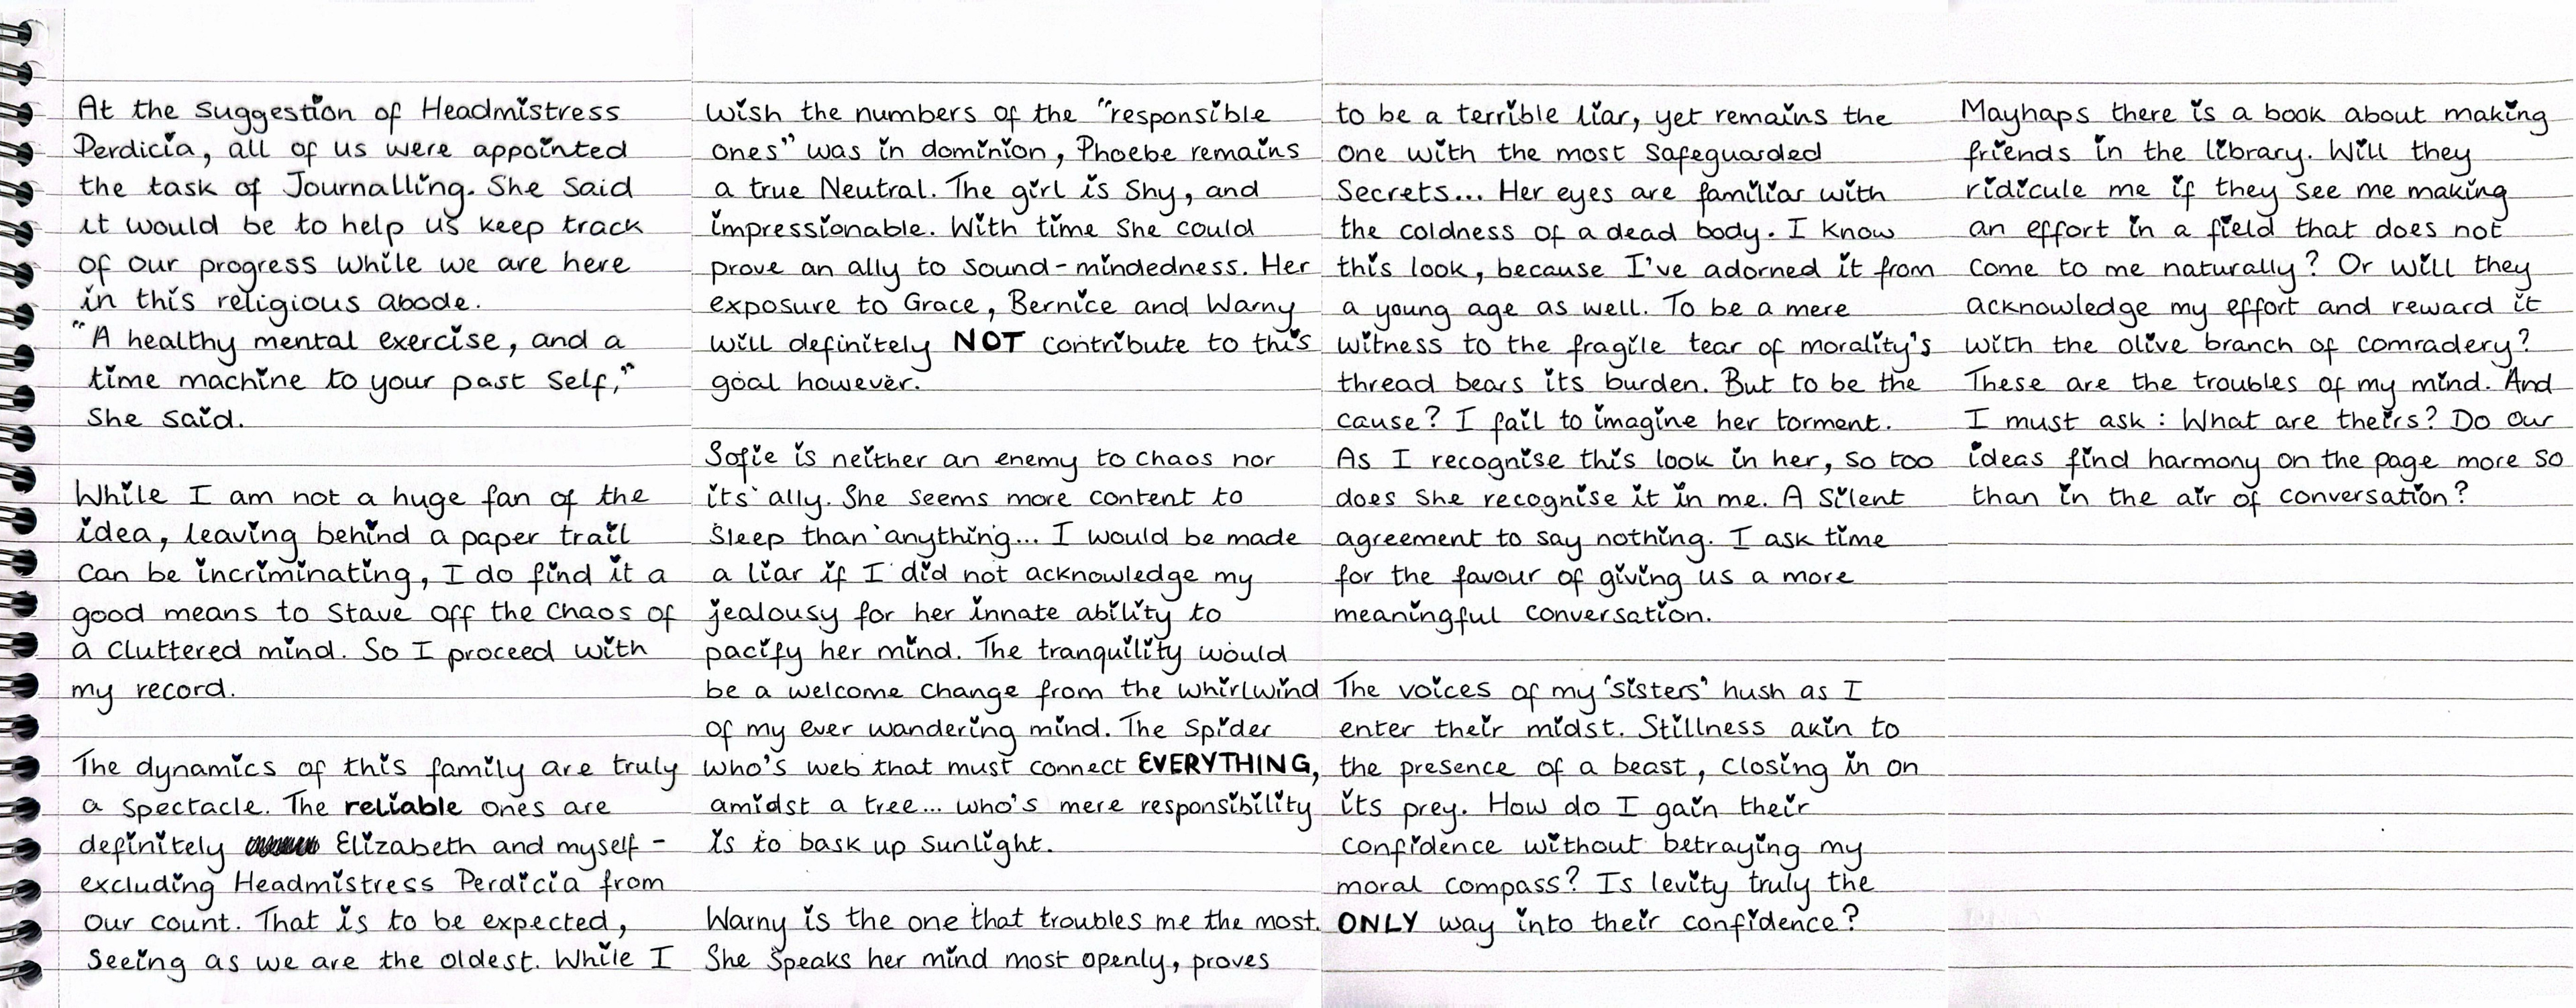 At the suggestion of Headmistress
Perdicia, all of us were appointed
the task of Journalling. She said
it would be to help us keep track
of our progress while we are here
in this religious abode.
"A healthy mental exercise, and a
time machine to your past self,"
she said.
While I am not a huge fan of the
idea, leaving behind a paper trail
can be incriminating, I do find it a
good means to stave off the chaos of
a cluttered mind. So I proceed with
my record.
The dynamics of this family are truly
a spectacle. The reliable ones are
definitely Elizabeth and myself -
excluding Headmistress Perdicia from
our count. That is to be expected,
seeing as we are the oldest. While I
wish the numbers of the "responsible
ones" was in dominion, Phoebe remains
a true Neutral. The girl is shy, and
impressionable. With time she could
prove an ally to sound-mindedness. Her
exposure to Grace, Bernice and Warny
will definitely NOT contribute to this
goal however.
Sofie is neither an enemy to chaos nor
its ally. She seems more content to
sleep than anything... I would be made
a liar if I did not acknowledge my
jealousy for her innate ability to
pacify her mind. The tranquility would
be a welcome change from the whirlwind
of my ever wandering mind. The Spider
who's web that must connect EVERYTHING,
amidst a tree... who's mere responsibility
is to bask up sunlight.
Warny is the one that troubles me the most.
She speaks her mind most openly, proves
to be a terrible liar, yet remains the
one with the most safeguarded
secrets... Her eyes are familiar with
the coldness of a dead body. I know
this look, because I've adorned it from
a young age as well. To be a mere
witness to the fragile tear of morality's
thread bears its burden. But to be the
cause? I fail to imagine her torment.
As I recognise this look in her, so too
does she recognise it in me. A silent
agreement to say nothing. I ask time
for the favour of giving us a more
meaningful conversation.
The voices of my 'sisters' hush as I
enter their midst. Stillness akin to
the presence of a beast, closing in on
its prey. How do I gain their
confidence without betraying my
moral compass? Is levity truly the
ONLY way into their confidence?
Mayhaps there is a book about making
friends in the library. Will they
ridicule me if they see me making
an effort in a field that does not
come to me naturally? Or will they
acknowledge my effort and reward it
with the olive branch of comradery?
These are the troubles of my mind. And
I must ask: What are theirs? Do our
ideas find harmony on the page more so
than in the air of conversation?